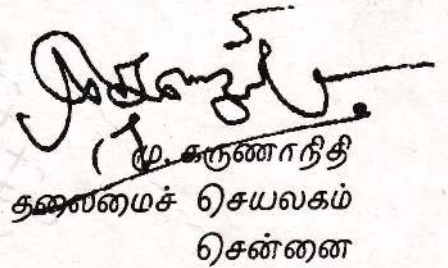 மு. கருணாநிதி
தலைமைச் செயலகம்
சென்னை